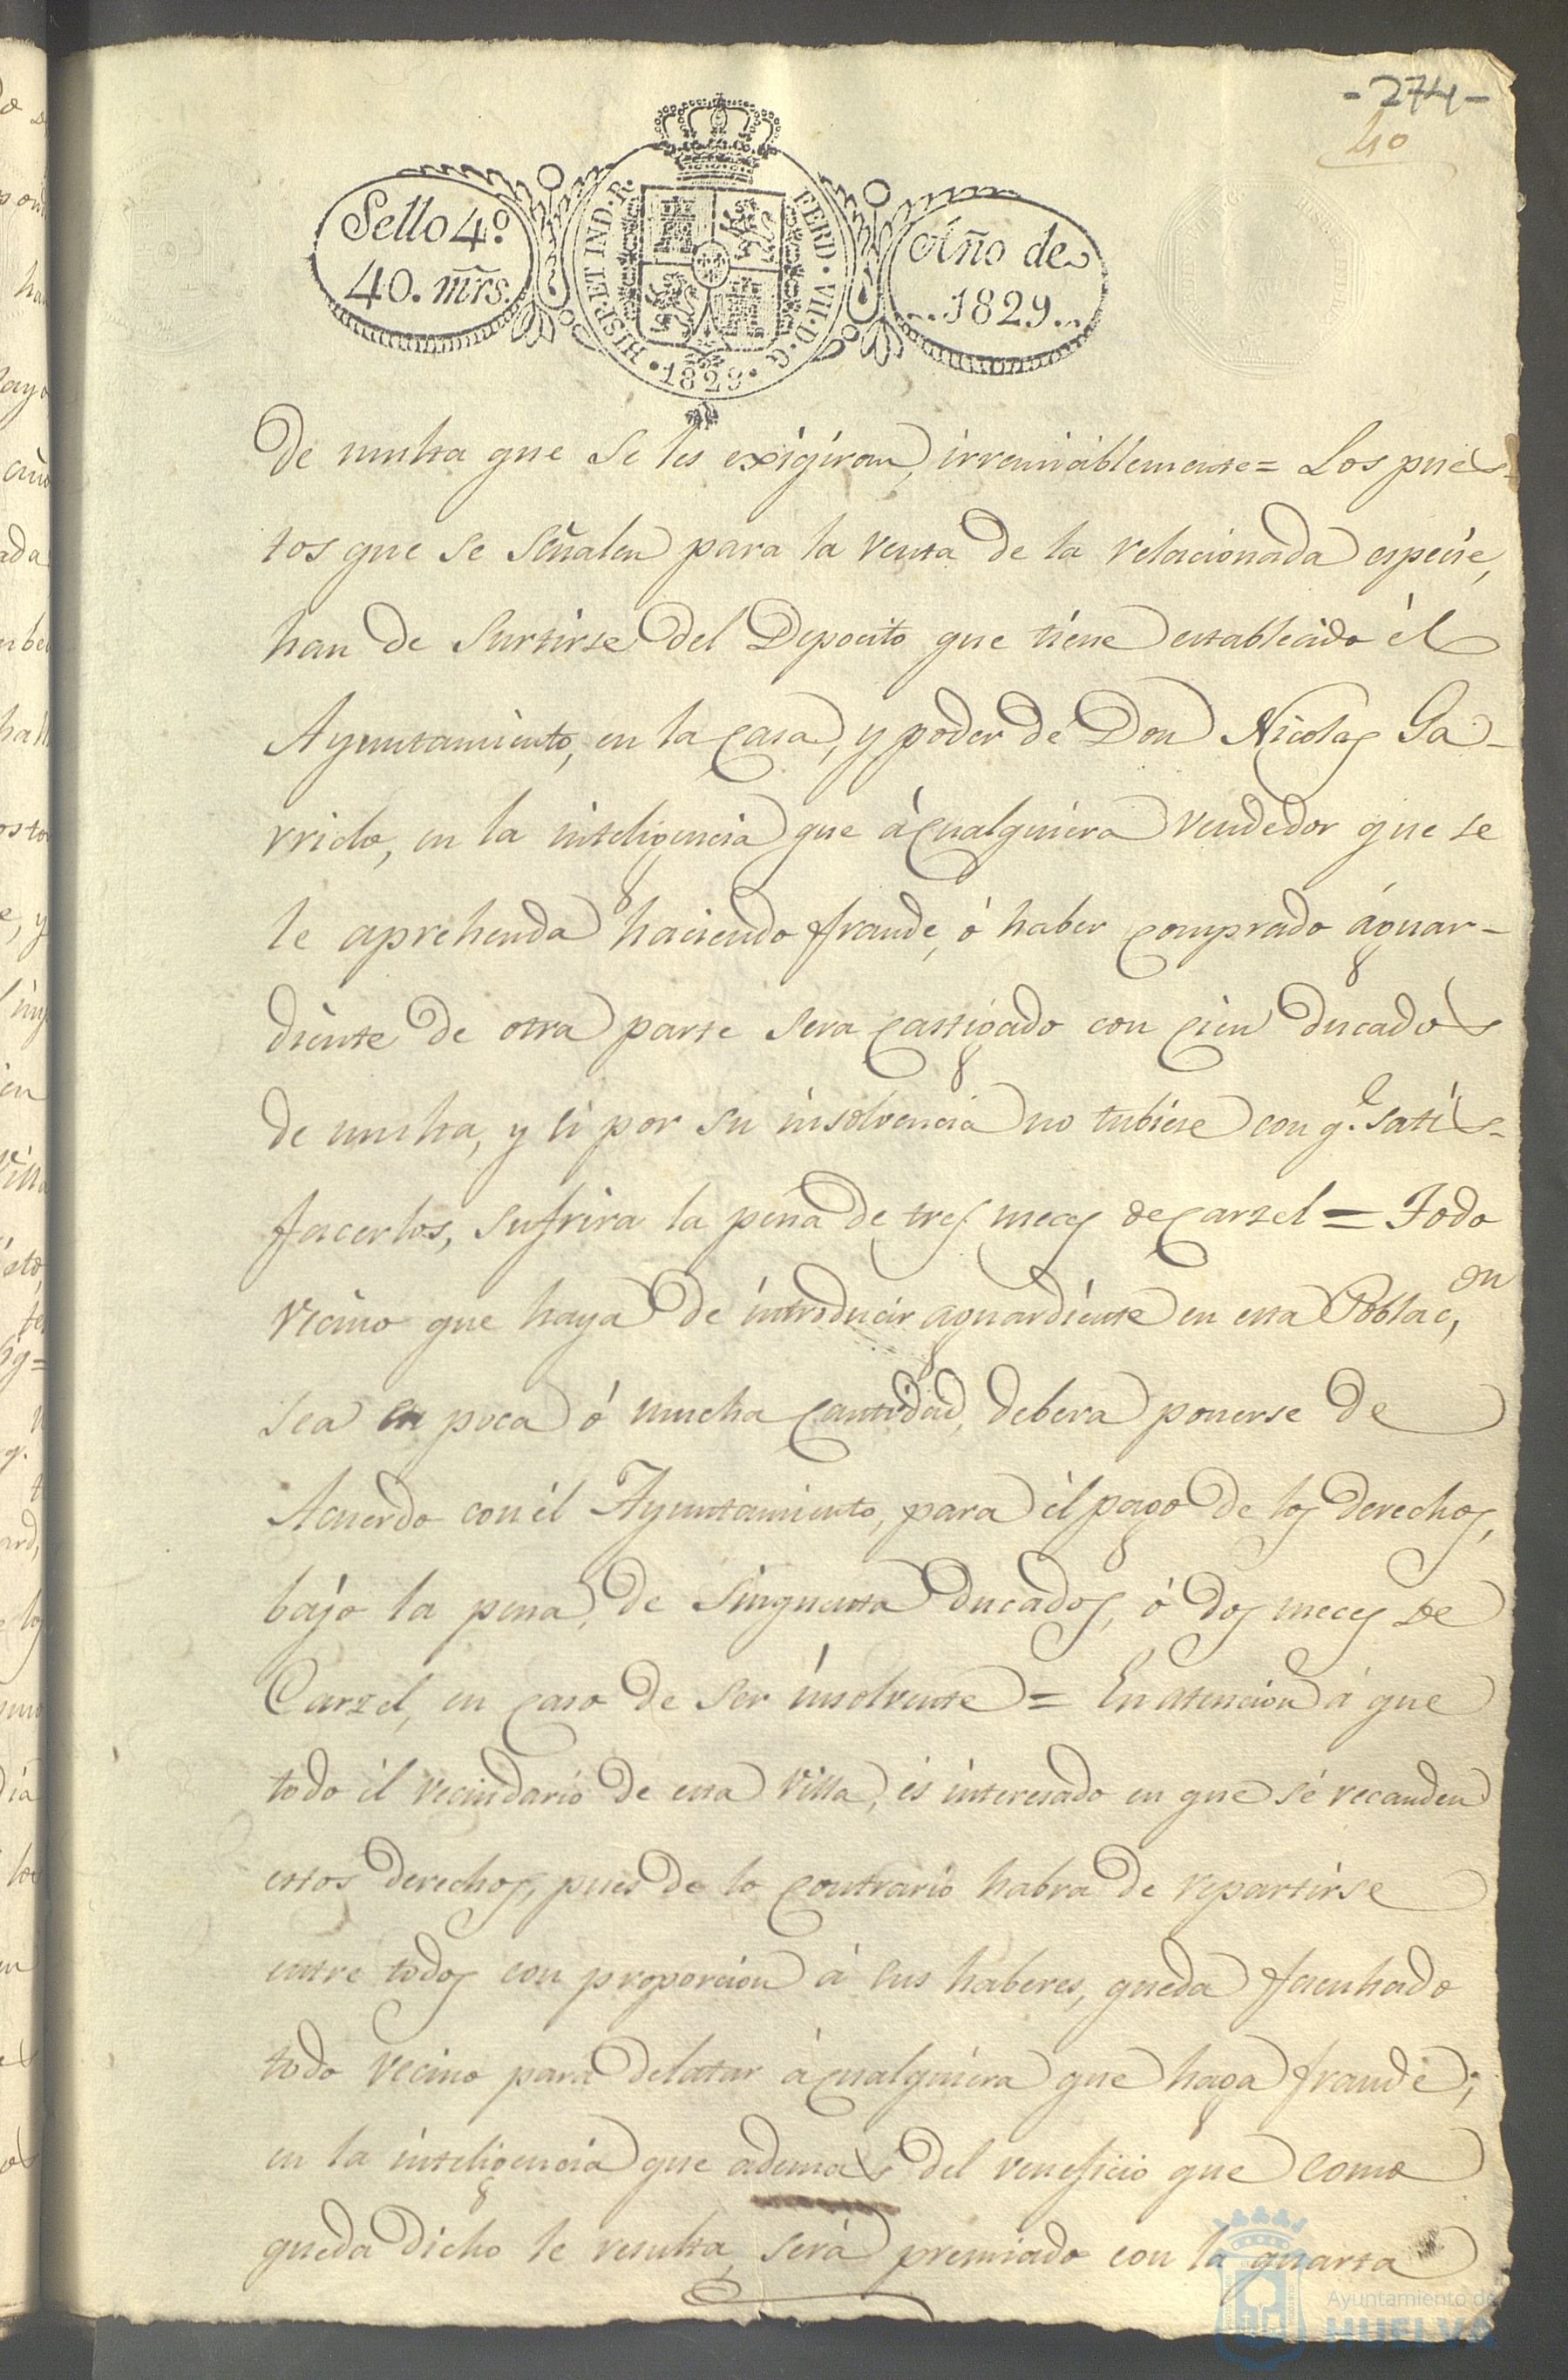 - 274 -
40
Sello 4º
40. mrs.
HISP. ET IND. R.
FERD. VII. D. G.
1829
Año de
1829
De multa que se les exigiran, irremiablemente = Los pues-
tos que se señalen para la venta de la relacionada especie,
han de surtirse del Deposito que tiene establecido él
Ayuntamiento, en la casa, y poder de Don Nicolas Ga-
rrido, en la inteligencia que á qualquiera vendedor que se
le aprehenda haciendo fraude, ó haber comprado águar-
diente de otra parte sera castigado con cien ducados
de multa, y si por su insolvencia no tubiese con q.e satis-
facerlos, sufrira la pena de tres meces de carzel = Todo
vecino que haya de introducir aguardiente en esta Poblac,on
sea en poca ó mucha cantidad, debera ponerse de
Acuerdo con él Ayuntamiento, para él pago de los derechos,
bájo la pena de Sinquenta ducados, ó dos meces de
Carzel, en caso de ser insolvente = En atencion á que
todo él vecindario de esta Villa, és interesado en que sé recauden
estos derechos, pues de lo contrario habra de repartirse
entre todos con proporcion á sus haberes, queda facultado
todo vecino para delatar á qualquiera que haga fraude;
en la inteligencia que ademas del veneficio que como
queda dicho le resulta, será premiado con la quarta
Ayuntamiento de
HUELVA